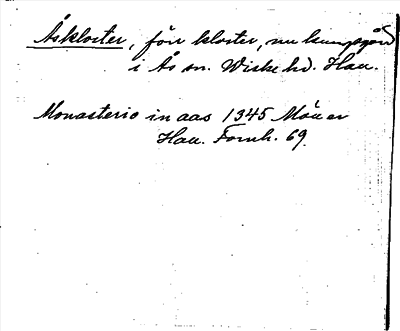 Åskloster, förr kloster, nu kungsgård
i Ås sn. Wiske hd. Hau.
Monasterio in aas 1345 Möller
Hau. Fornh. 69.